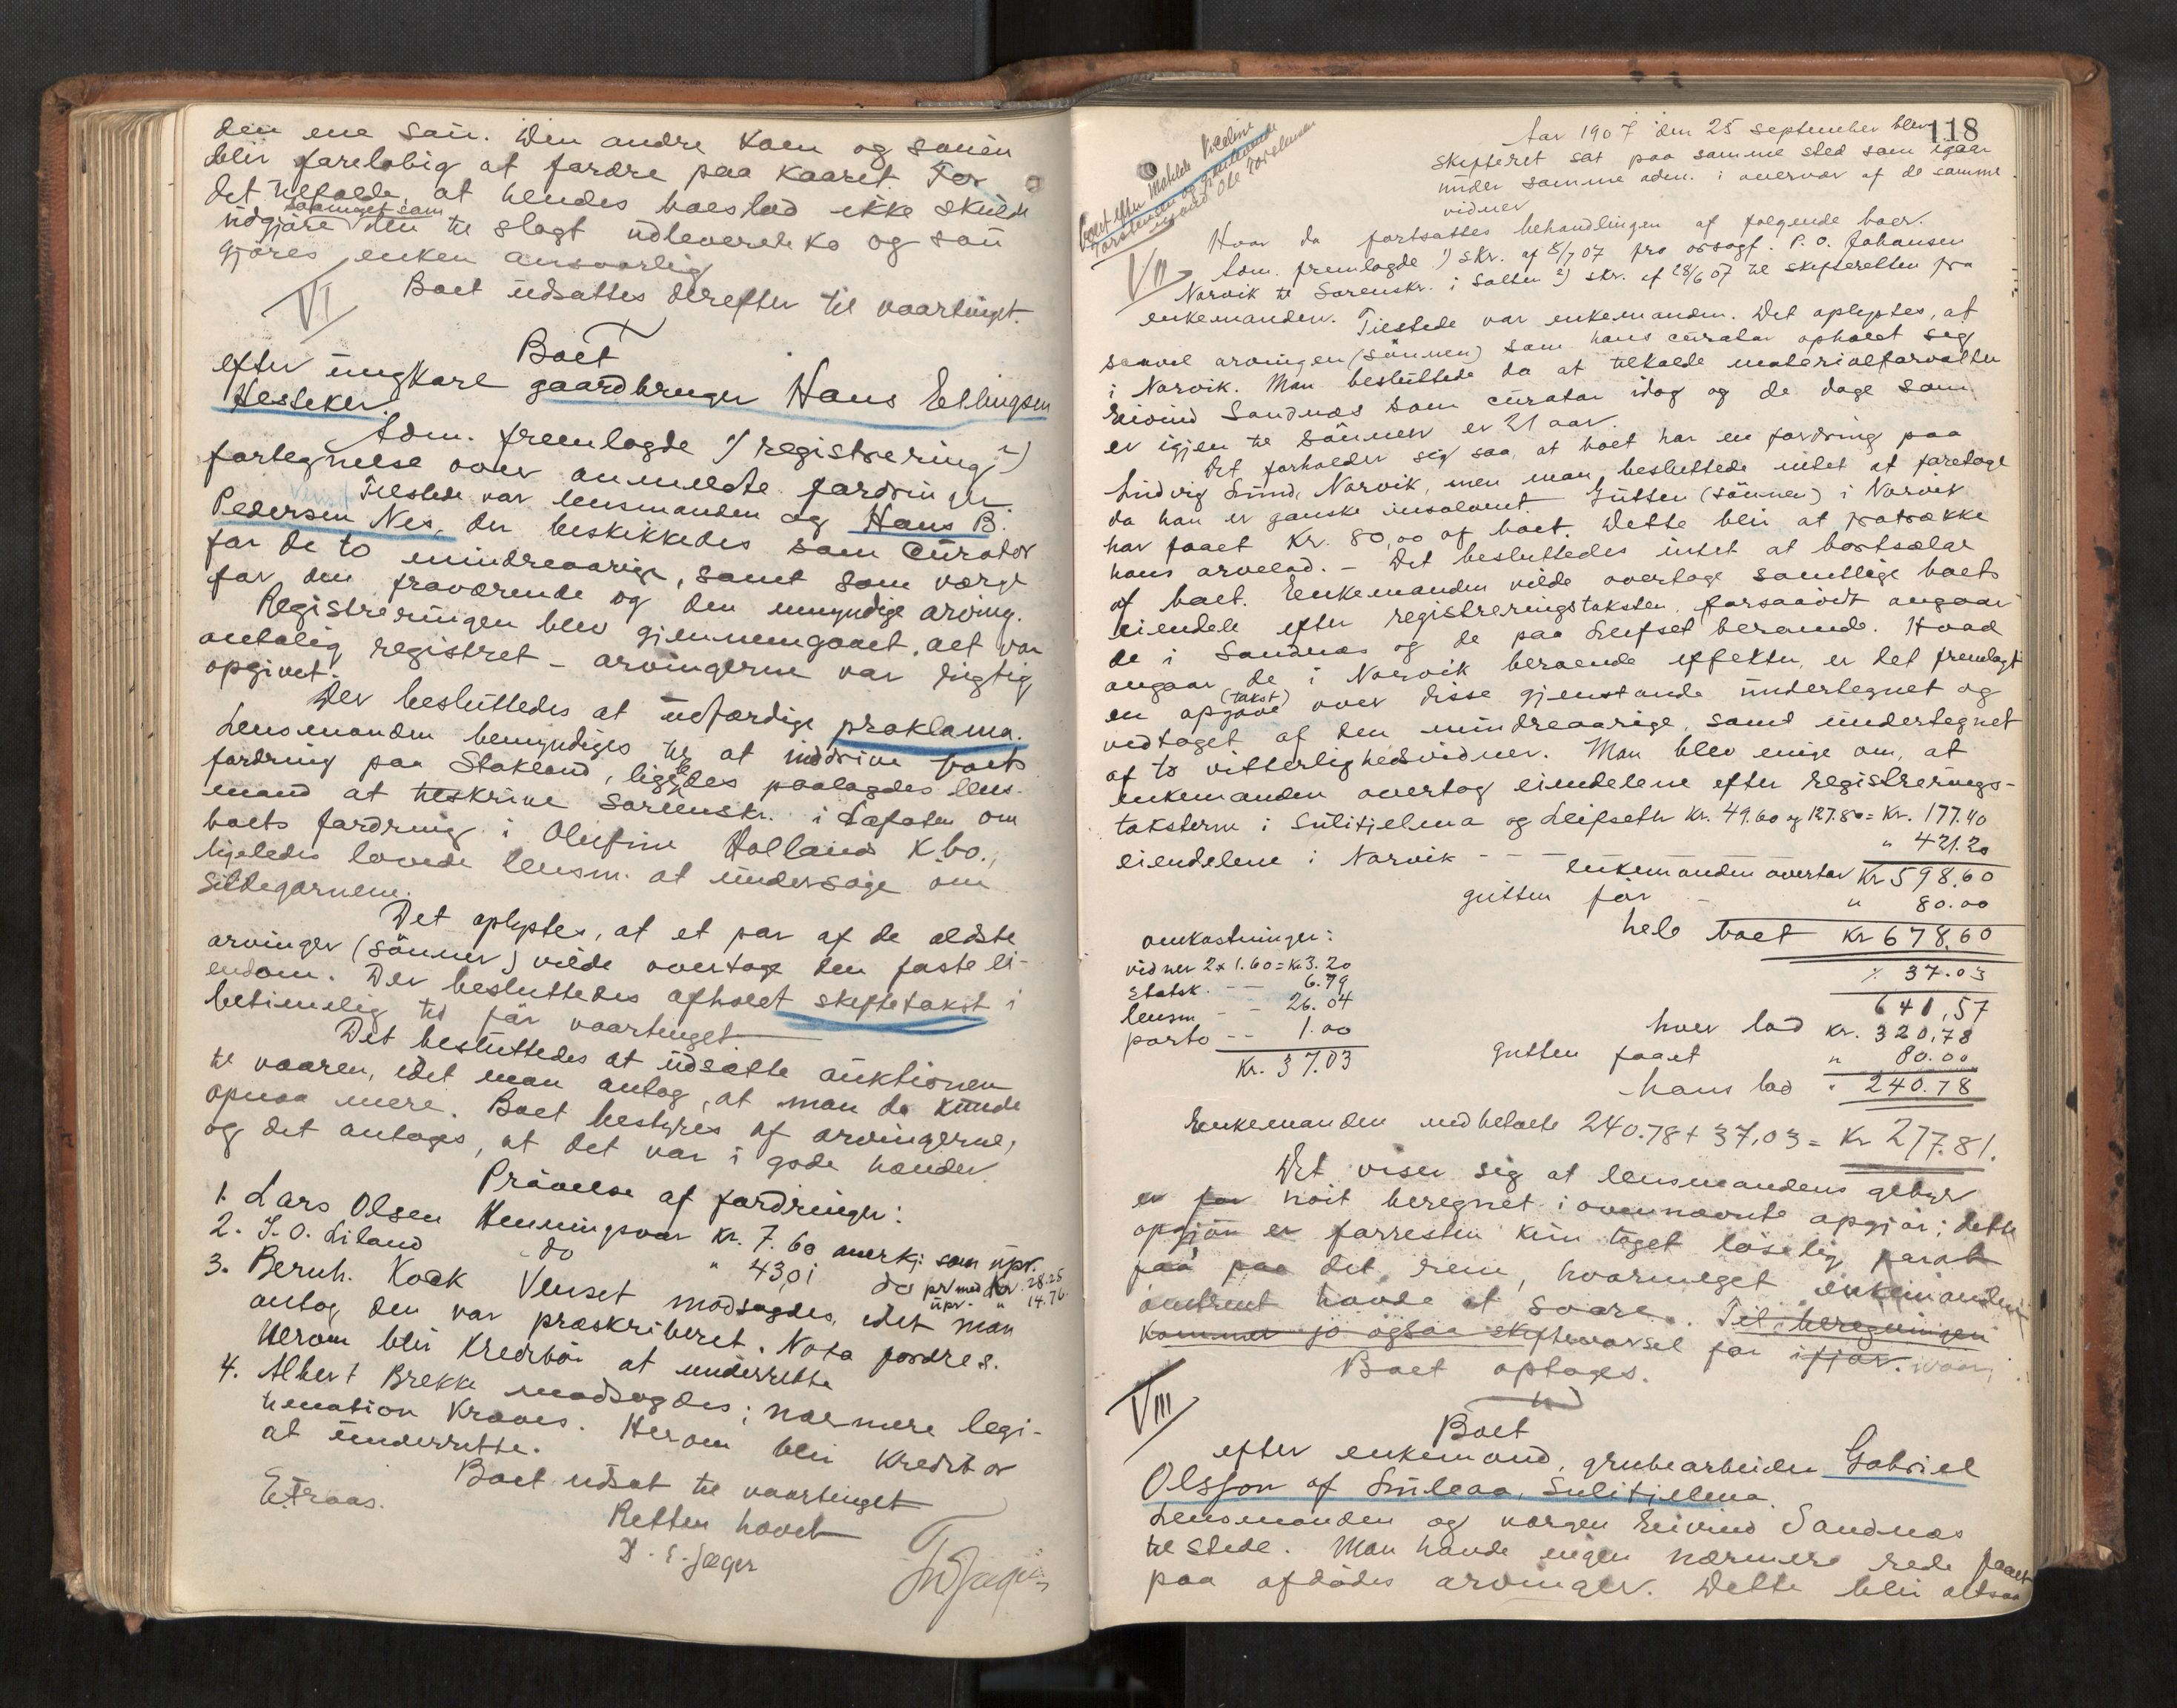 den ene sau. Den andre koen og sauen
blir foreløbig at fordre paa kaaret. For
det tilfælde, at hendes boeslod ikke skulde
udgjøre saameget som den til slagt udleverede ko og sau
gjøres enken ansvarlig
Boet udsattes derefter til vaartinget.
VI
Boet
efter ungkarl gaardbruger Hans Ellingsen
Hesteker.
Adm. fremlagde 1) registrering 2)
fortegnelse over anmeldte fordringer.
Tilstede var lensmanden og Hans B.
Pedersen Nes, der beskikkedes som curator
for de to mindreaarige, samt som værge
for den fraværende og den umyndige arving.
Registreringen blev gjennemgaaet. alt var
antalig registret - arvingerne var rigtig
opgivet.
Der besluttedes at udfærdige proklama.
Lensmanden bemyndiges til at inddrive boets
fordring paa Stokland, ligeledes paalagdes lens-
mand at tilskrive sorenskr. i Lofoten om
boets fordring i Olufine Holland k.bo.,
ligeledes lovede lensm. at undersøge om
sildegarnene.
Det oplystes, at et par af de ældste
arvinger (sønner) vilde overtage den faste ei-
endom. Der besluttedes afholdt skiftetakst i
betimelig tid før vaartinget
Det besluttedes at udsætte auktionen
til vaaren, idet man antog, at man da kunde
opnaa mere. Boet bestyres af arvingerne,
og det antages, at det var i gode hænder.
Prøvelse af fordringer:
1. Lars Olsen Henningsvær kr. 7.60 anerkj. som upr.
2. J. O. Liland do " 43,01 do pr med kr. 28.25
upr. " 14.76
3. Bernh. Kock Venset modsagdes, idet man
antog den var præskriberet. Nota fordres.
Herom blir kreditor at underrette
4. Albert Brekke modsagdes; nærmere legi-
timation kræves. Herom blir kreditor
at underrette.
Boet udsat til vaartinget
Retten hævet
E. Traas.
D. E. Jæger
118
Aar 1907 den 25 september blev
skifteret sat paa samme sted som igaar
under samme adm. i overvær af de samme
vidner
Boet efter Matilde
Torstensen og gjenlevende
egmand Ole Torstensen
VII
Hvor da fortsattes behandlingen af følgende boer.
Adm. fremlagde 1) skr. af 8/7 07 fra orsagf. P. O. Johansen
Narvik til Sorenskr. i Salten 2) skr. af 28/6 07 til skifteretten fra
enkemanden. Tilstede var enkemanden. Det oplystes, at
saavel arvingen (sønnen) som hans curator opholdt sig
i Narvik. Man besluttede da at tilkalde materialforvalter
Eivind Sandnæs som curator idag og de dage som
er igjen til sønnen er 21 aar.
Det forholder sig saa, at boet har en fordring paa
Ludvig Lund, Narvik, men man besluttede intet at foretage
da han er ganske insolvent. Gutten (sønnen) i Narvik
har faaet Kr. 80,00 af boet. Dette blir at fratrække
hans arvelod. - Det besluttedes intet at bortsælge
af boet. Enkemanden vilde overtage samtlige boets
eiendele efter registreringstaksten, forsaavidt angaar
de i Sandnæs og de paa Leifset beroende. Hvad
angaar de i Narvik beroende effekter, er det fremlagt
en opgave (takst) over disse gjenstande undertegnet og
vedtaget af den mindreaarige, samt undertegnet
af to vitterlighedsvidner. Man blev enige om, at
enkemanden overtog eiendelene efter registrerings-
taksterne i Sulitjelma og Leifseth kr. 49.60 og 127.80 = kr. 177.40
eiendelene i Narvik - - - " 421.20
enkemanden overtar Kr 598.60
gutten får - " 80.00
hele boet kr 678.60
% 37.03
641,57
hver lod kr. 320,78
gutten faaet " 80.00
hans lod " 240.78
omkostninger:
vidner 2 x 1.60 = kr. 3.20
Statsk. - - 6.79
lensm - - 26.04
porto - - 1.00
Kr. 37.03
Enkemanden indbetalte 240.78 + 37,03 = Kr 277.81.
Det viser sig at lensmandens gebyr
er for høit beregnet i ovennævnte opgjør; dette
opgjør er forresten kun taget løselig parat
paa paa det rene, hvormeget enkemanden
omtrent havde at svare. Til beregningen
kommer jo ogsaa skiftevarsel for ifjor. iaar,
Boet optages.
VIII
Boet
efter enkemand, grubearbeider Gabriel
Olsson af Luleaa, Sulitjelma.
Lensmanden og værgen Eivind Sandnæs
tilstede. Man havde ingen nærmere rede faaet
paa afdødes arvinger. Dette blir altsaa